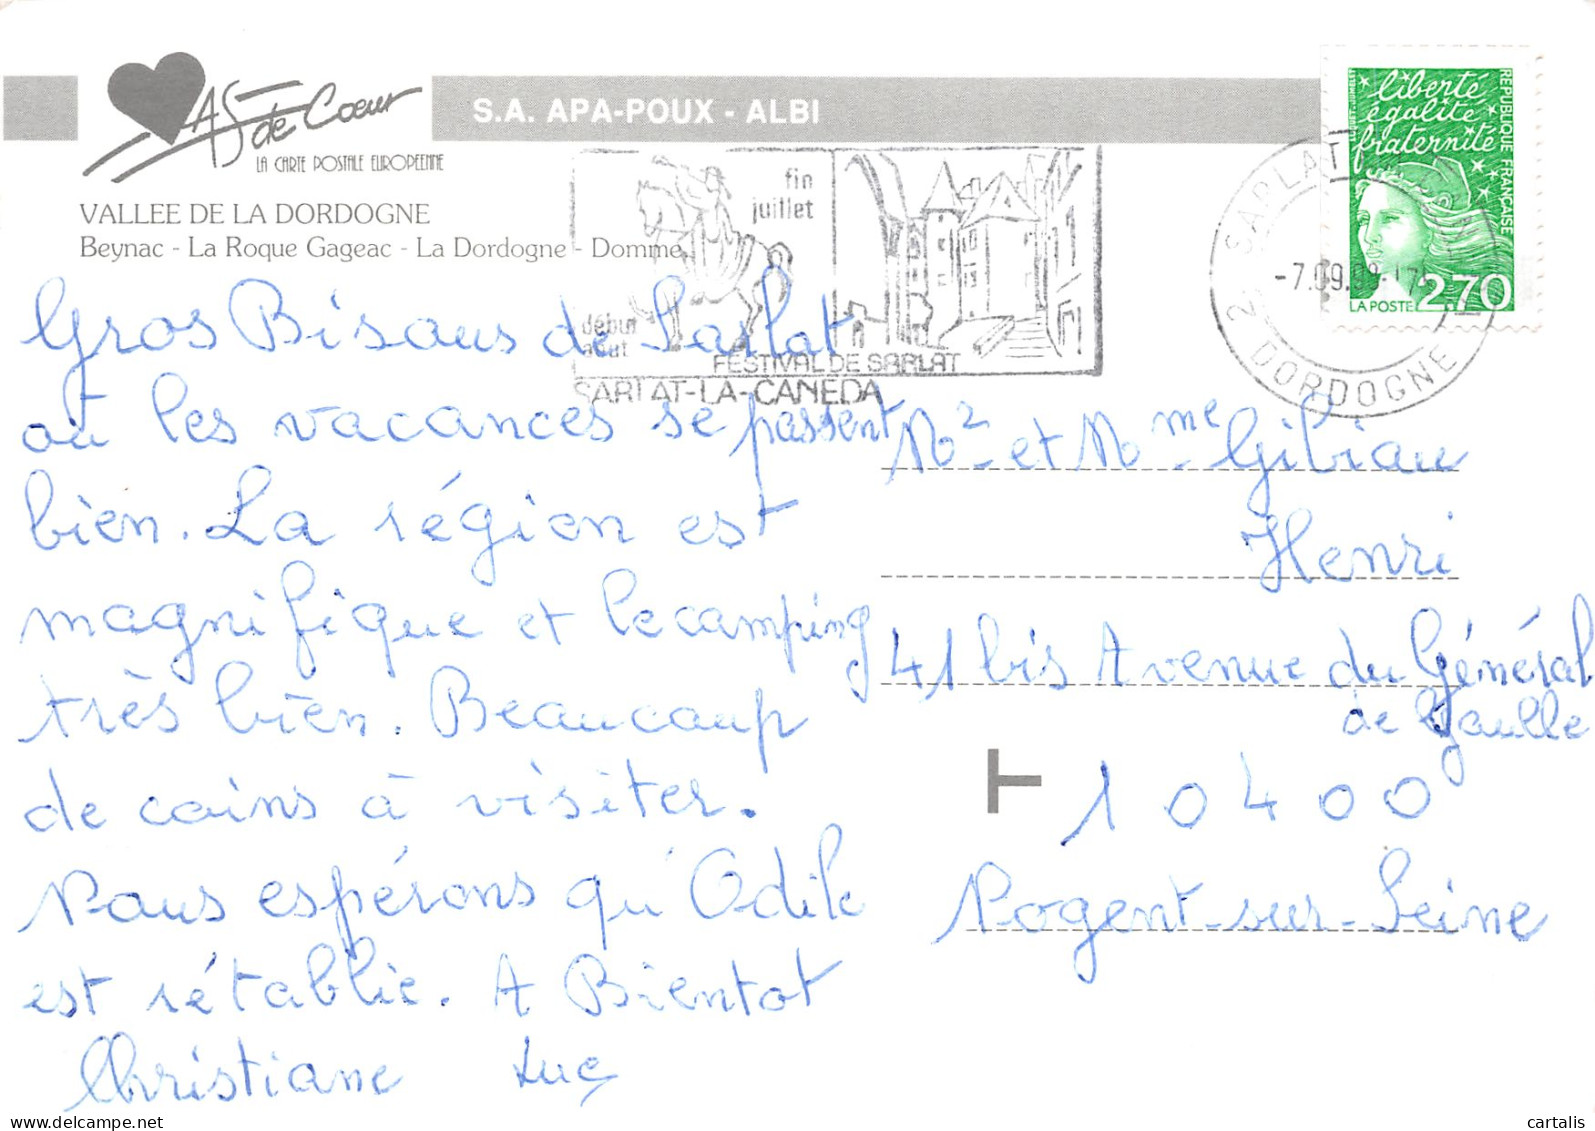 AS de Coeur
LA CARTE POSTALE EUROPEENNE
S.A. APA-POUX - ALBI
VALLEE DE LA DORDOGNE
Beynac - La Roque Gageac - La Dordogne - Domme
fin
juillet
début
août
FESTIVAL DE SARLAT
SARLAT-LA-CANEDA
SARLAT
-7.09.99
24 DORDOGNE
liberté
égalité
fraternité
REPUBLIQUE FRANÇAISE
LA POSTE 2,70
Gros Bisous de Sarlat
où les vacances se passent
bien. La région est
magnifique et le camping
très bien. Beaucoup
de coins à visiter.
Nous espérons qu'Odile
est rétablie. A Bientot
Christiane Luc
Mr et Mme Gibiau
Henri
41 bis Avenue du Général
de Gaulle
10400
Nogent-sur-Seine
cartalis
delcampe.net